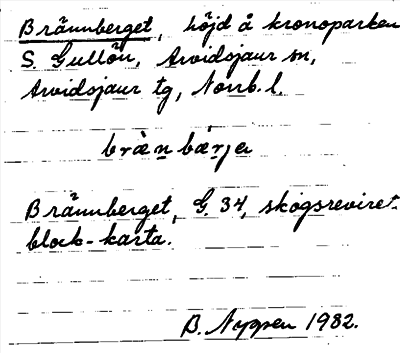 Brännberget, höjd å kronoparken
S. Gullön, Arvidsjaur sn,
Arvidsjaur tg, Norrb. l.
brä̀n bæ̀rja
Brännberget, G. 34, skogsreviret.
block-karta.
B. Nygren 1982.